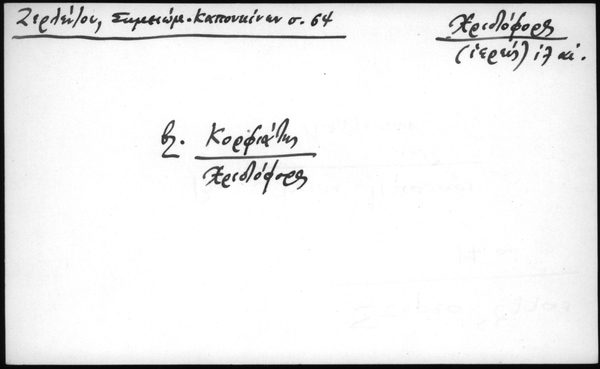 Ζερλέντου, Σημειώμ. Καπουκίνων σ. 64
Χριστόφορος
(ἱερεύς) ιζ αἰ.
βλ. Κορφιάτης
Χριστόφορος